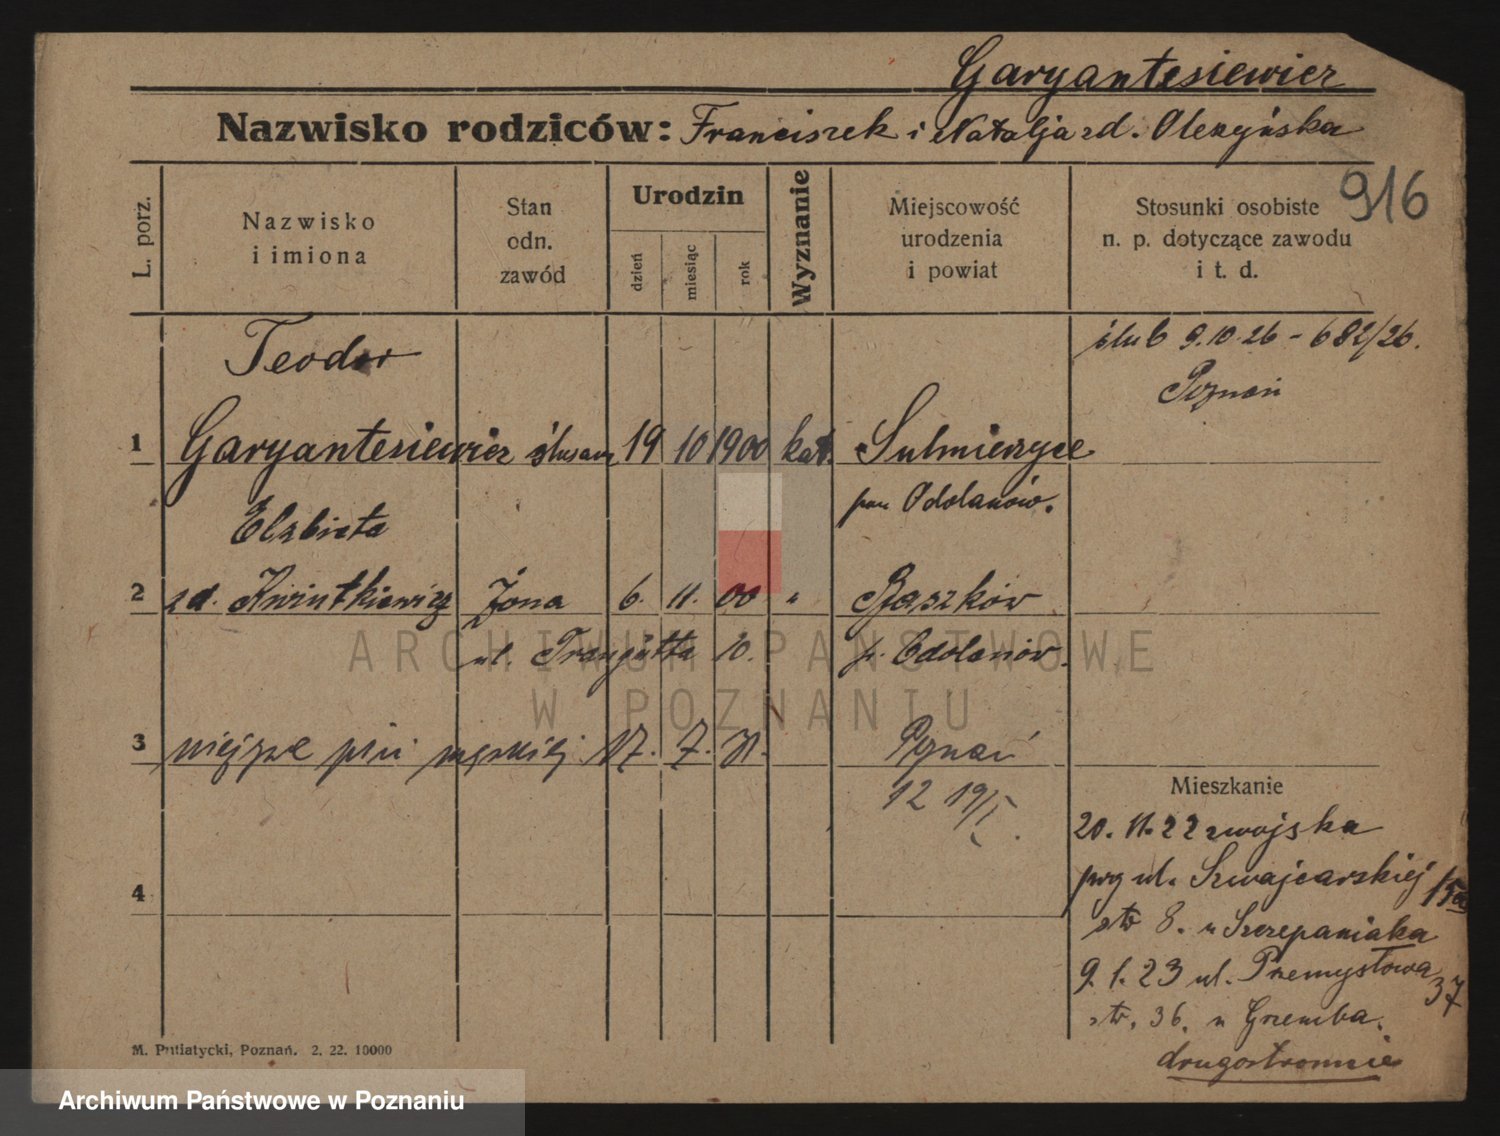 Garyantesiewicz
Nazwisko rodziców: Franciszek i Natalja zd. Olczyńska
916
L. porz.
Nazwisko
i imiona
Stan
odn.
zawód
Urodzin
dzień
miesiąc
rok
Wyznanie
Miejscowość
urodzenia
i powiat
Stosunki osobiste
n. p. dotyczące zawodu
i t. d.
ślub 9.10.26 - 682/26.
Poznań
Teodor
1 Garyantesiewicz ślusarz 19 10 1900 kat. Sulmierzyce
pow Odolanów.
Elżbieta
2 zd. Kwiutkiewicz Żona 6. 11. 00 " Baszków
ul. Traugutta 10. p. Odolanów.
3 płci męskiej 17. 7. 31. Poznań
12 19/I
Mieszkanie
20. 11. 22 z wojska
przy ul. Szwajcarskiej 15a
str 8. u Szczepaniaka
9. 1. 23 ul. Przemysłowa 37
str. 36. u Grzemba.
drugostronnie
4
M. Putiatycki, Poznań. 2. 22. 10000
ARCHIWUM PAŃSTWOWE
W POZNANIU
Archiwum Państwowe w Poznaniu